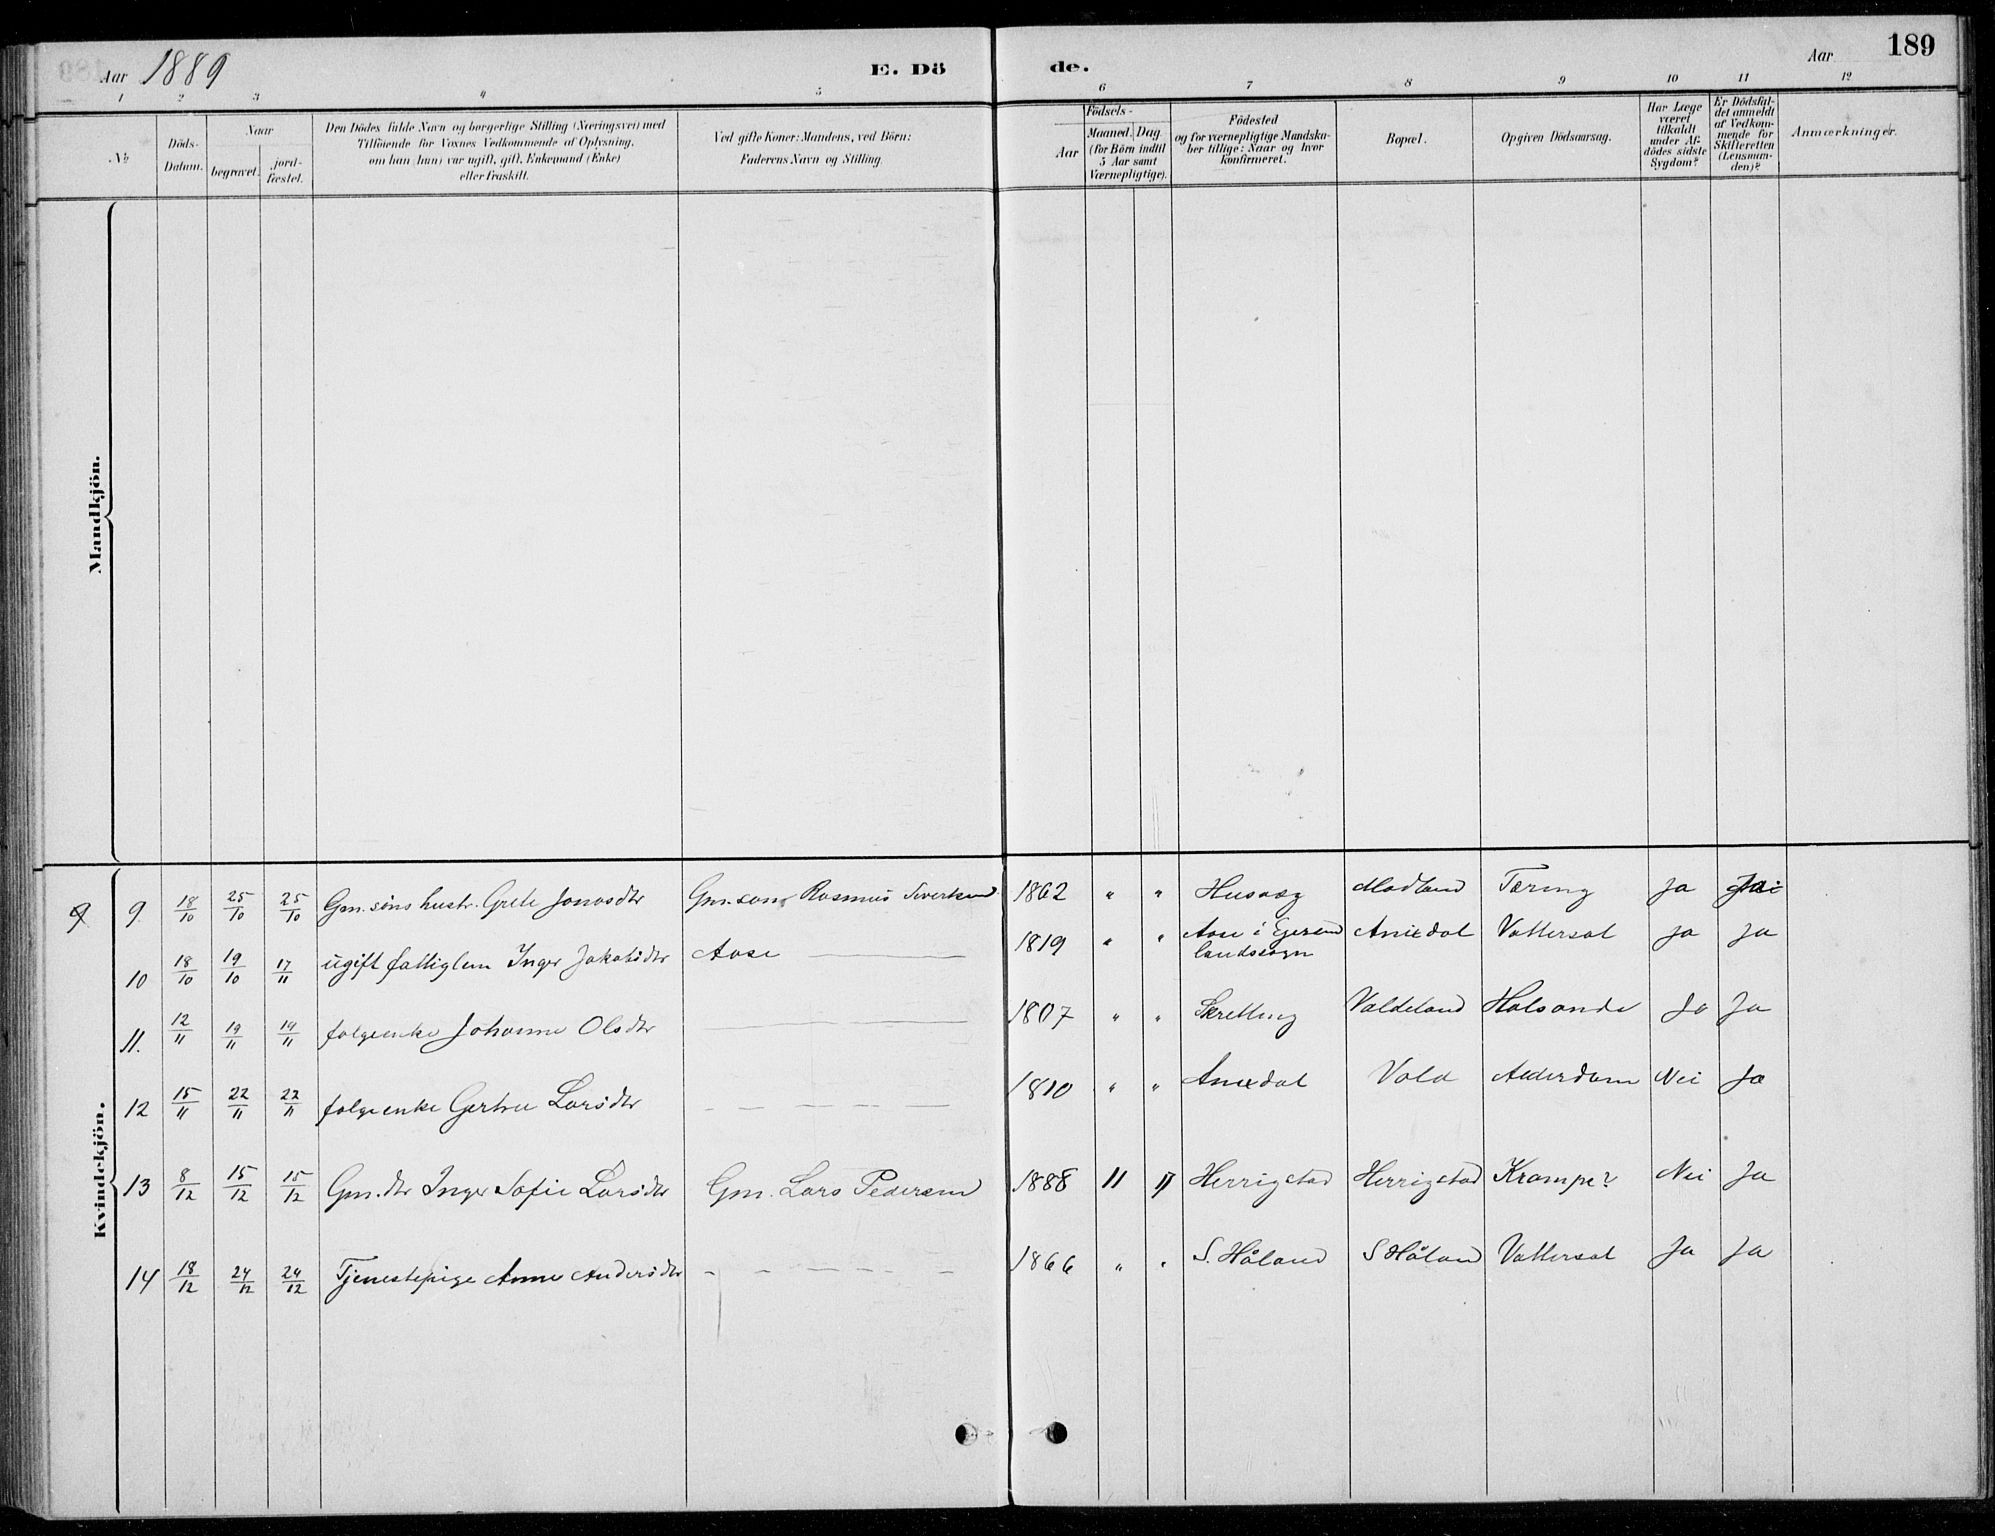 Aar 1889
E. Dö
de.
Aar
189
1 2 3 4 5 6 7 8 9 10 11 12
No
Döds-
Datum.
Naar
begravet.
jord-
fæstet.
Den Dödes fulde Navn og borgerlige Stilling (Næringsvei) med
Tilföiende for Voxnes Vedkommende af Oplysning,
om han (hun) var ugift, gift, Enkemand (Enke)
eller fraskilt.
Ved gifte Koner: Mandens, ved Börn:
Faderens Navn og Stilling.
Födsels-
Aar
Maaned. Dag
(for Börn indtil
5 Aar samt
Værnepligtige).
Födested
og for værnepligtige Mandska-
ber tillige: Naar og hvor
konfirmeret.
Bopæl.
Opgiven Dödsaarsag.
Har Læge
været
tilkaldt
under Af-
dödes sidste
Sygdom?
Er Dödsfal-
det anmeldt
af Vedkom-
mende for
Skifteretten
(Lensman-
den)?
Anmærkninger.
Mandkjön.
Kvindekjön.
9 9. 18/10 25/10 25/10 Gm.søns hustr. Grete Jonasdtr Gm.søn Rasmus Sivertsen 1862 " " Husaas Madland Tæring Ja Ja
10 18/10 19/10 17/11 ugift fattiglem Inger Jakobsdtr Aase 1819 " " Aase i Egersund landssogn Anisdal Vattersot Ja Ja
11. 12/11 19/11 19/11 folgeenke Johanne Olsdtr 1807 " " Skretting Valdeland Halsonde Ja Ja
12 15/11 22/11 22/11 folgeenke Gertru Larsdtr 1810 " " Anisdal Vold Alderdom Nei Ja
13 8/12 15/12 15/12 Gm. dtr Inger Sofie Larsdtr Gm. Lars Pedersen 1888 11 17 Herrigstad Herrigstad Krampe? Nei Ja
14 18/12 24/12 24/12 Tjenestepige Anne Andersdtr 1866 " " S. Håland S Håland Vattersot Ja Ja